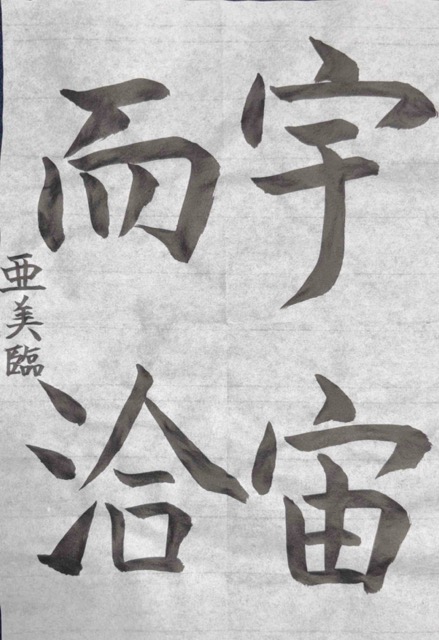 宇宙
而洽
亜美臨